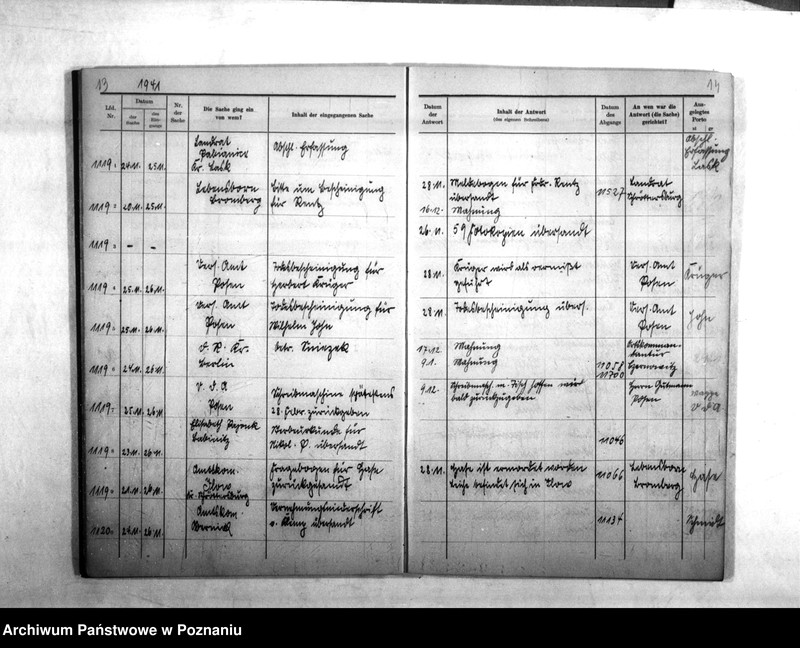 13 1941
Lfd. Nr.
Datum
der Sache
des Eingangs
Nr. der Sache
Die Sache ging ein von wem?
Inhalt der eingegangenen Sache
1119. 24.11. 25.11. Landrat Pabianice Kr. Lask Abschl. Erfassung
1119 20.11. 25.11. Lebensborn Bromberg Bitte um Bescheinigung für Rentz
1119 - -
1119 25.11. 26.11. Vers. Amt Posen Todesbescheinigung für Herbert Krüger
1119 25.11. 26.11. Vers. Amt Posen Todesbescheinigung für Wilhelm John
1119 24.11. 26.11. D. R. Kr. Berlin betr.
1119 25.11. 26.11. V. D. A Posen Schreibmaschine spätestens 28. Febr. zurückgeben
1119 23.11. 26.11. Elisabeth Sterbeurkunde für Nikol. P. übersandt
1119 21.11. 26.11. Amtskom. Ilow Kr. Schröttersburg Fragebogen für Hase zurückgesandt
1120 24.11. 26.11. Amtskom. Vernehmungsniederschrift übersandt
14
Datum der Antwort
Inhalt der Antwort
(des eigenen Schreibens)
Datum des Abgangs
An wen war die Antwort (die Sache) gerichtet?
Ausgelegtes Porto
Abschl. Erfassung Lask
28.11. Meldebogen für Frdr. Rentz übersandt 11527 Landrat Schröttersburg
16.12. Mahnung
26.11. 59 Fotokopien übersandt
28.11. Krüger wird als vermißt geführt Vers. Amt Posen Krüger
28.11. Todesbescheinigung übers. Vers. Amt Posen John
17.12. Mahnung Ortskommandantur
9.1. Mahnung 11058
11700
9.12. Schreibmasch. m. Tisch hoffen wir bald zurückzugeben Herrn Gutmann Posen V D A
11046
28.11. Hase ist ermordet worden Leiche befindet sich in Ilow 11066 Lebensborn Bromberg Hase
11134 Schmidt
Archiwum Państwowe w Poznaniu